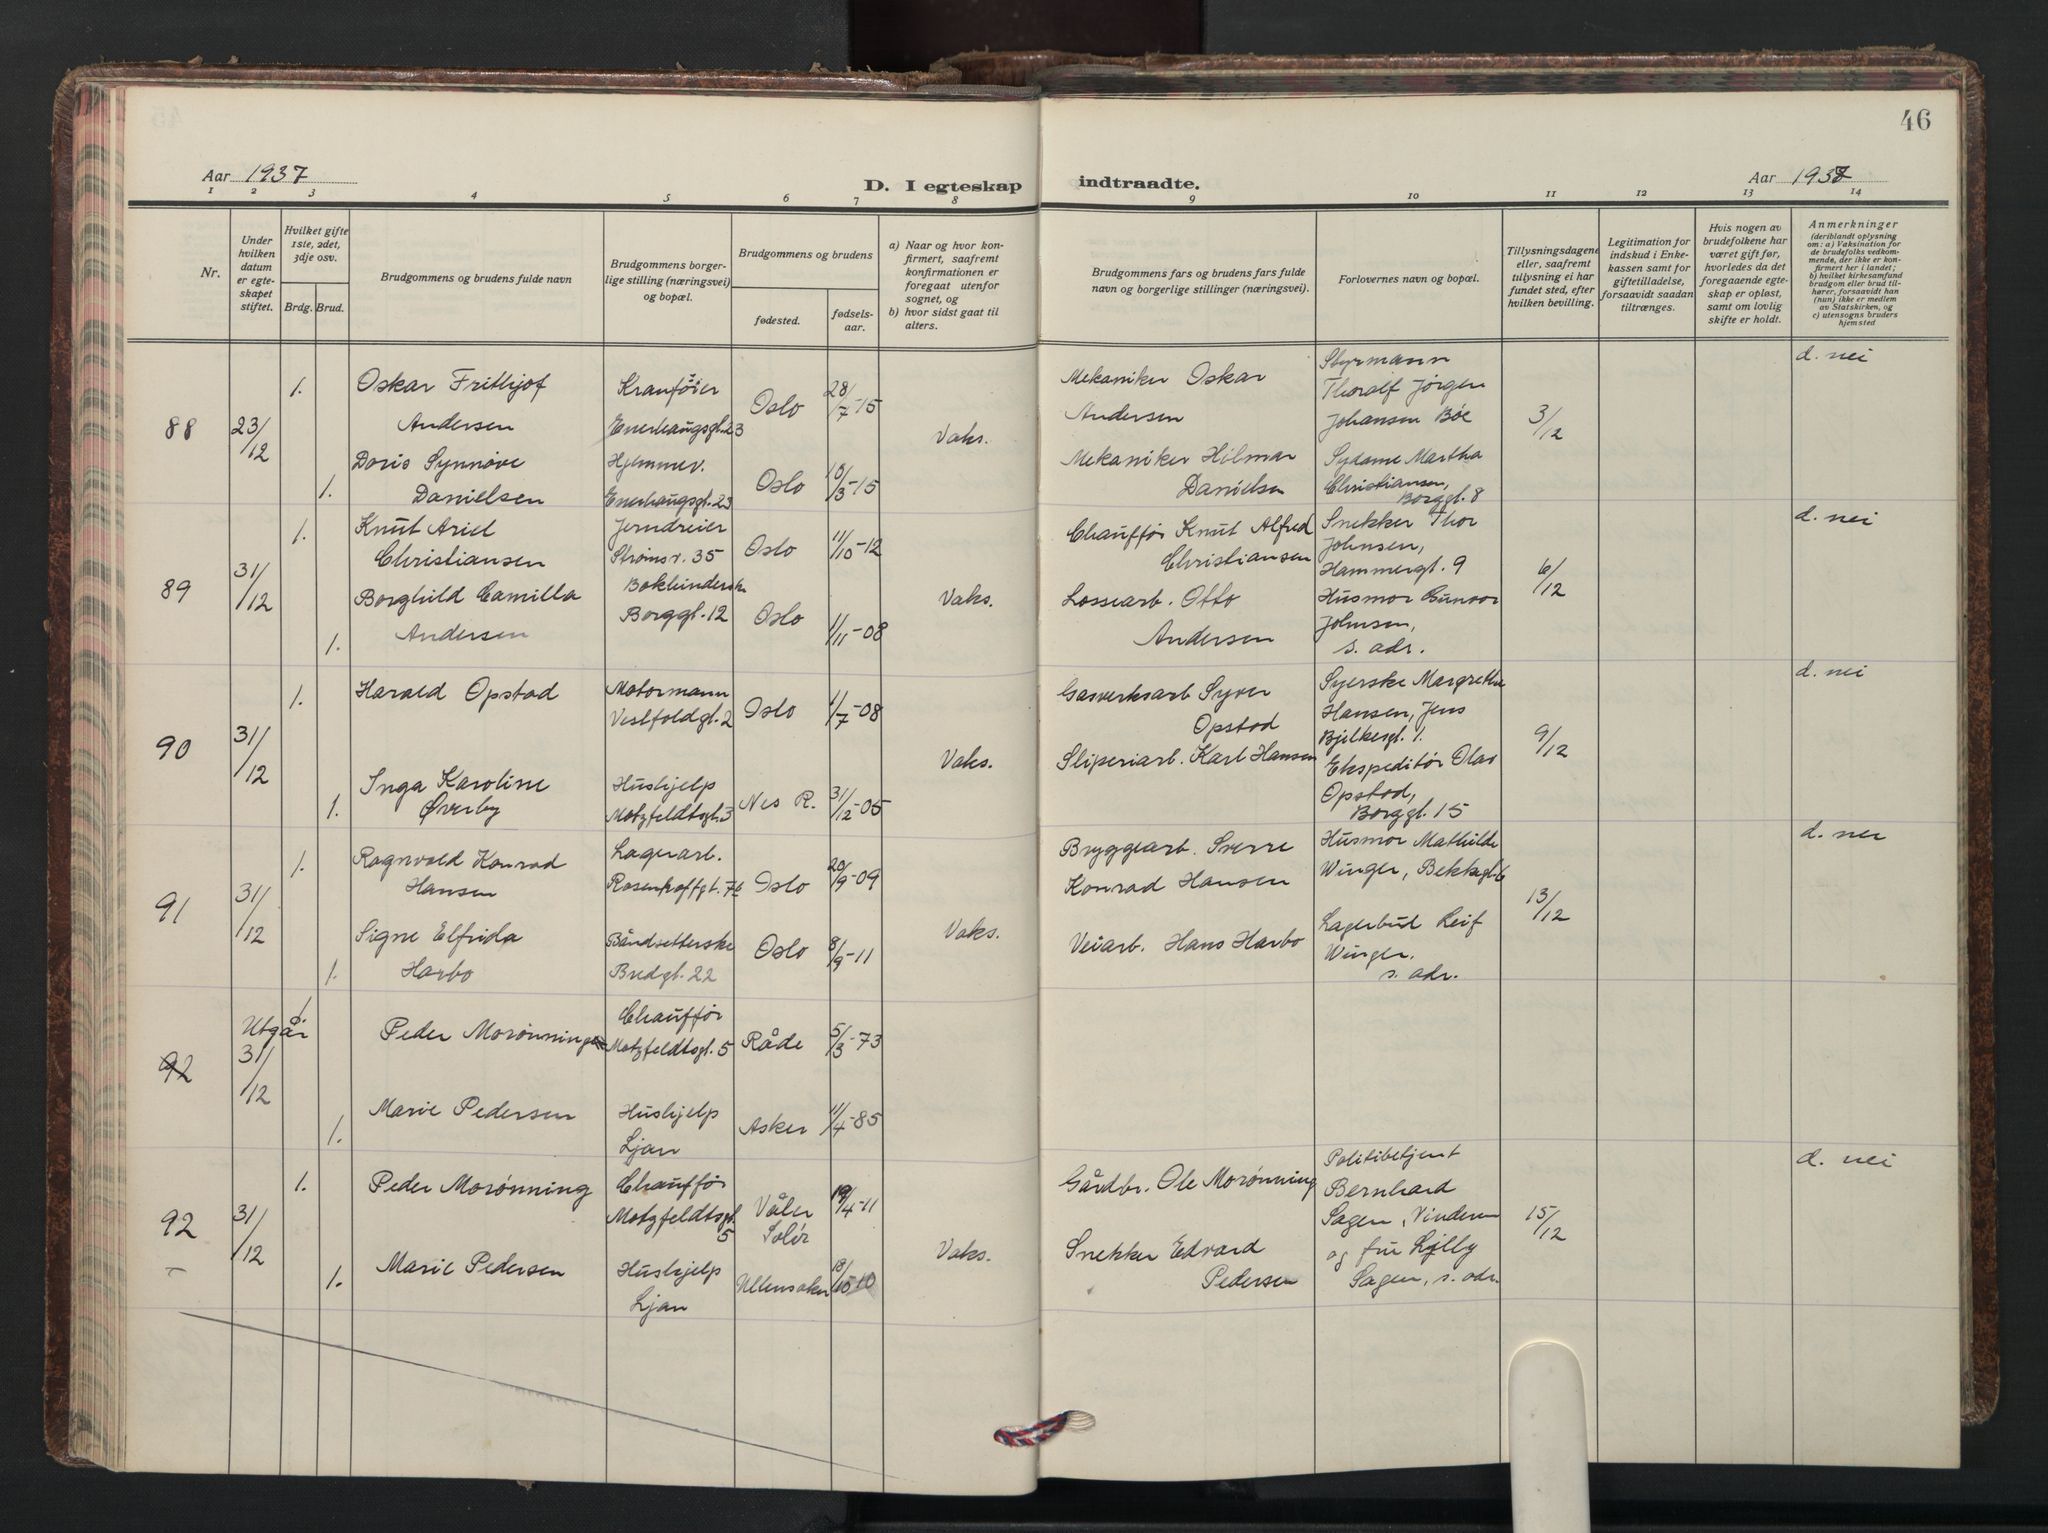 46
Aar 1937
D. I egteskap indtraadte.
Aar 1937
1 2 3 4 5 6 7 8 9 10 11 12 13 14
Nr.
Under hvilken datum er egteskapet stiftet.
Hvilket gifte 1ste, 2det, 3dje osv.
Brdg. Brud.
Brudgommens og brudens fulde navn
Brudgommens borgerlige stilling (næringsvei) og bopæl.
Brudgommens og brudens
fødested.
fødselsaar.
a) Naar og hvor konfirmert, saafremt konfirmationen er foregaaet utenfor sognet, og
b) hvor sidst gaat til alters.
Brudgommens fars og brudens fars fulde navn og borgerlige stillinger (næringsvei).
Forlovernes navn og bopæl.
Tillysningsdagene eller, saafremt tillysning ei har fundet sted, efter hvilken bevilling.
Legitimation for indskud i Enkekassen samt for giftetilladelse, forsaavidt saadan tiltrænges.
Hvis nogen av brudefolkene har været gift før, hvorledes da det foregaaende egteskap er opløst, samt om lovlig skifte er holdt.
Anmerkninger (deriblandt oplysning om: a) Vaksination for de brudefolks vedkommende, der ikke er konfirmert her i landet; b) hvilket kirkesamfund brudgom eller brud tilhører, forsaavidt han (hun) ikke er medlem av Statskirken, og c) utensogns bruders hjemsted
88
23/12
1.
Oskar Frithjof
Andersen
Kranføier
Enerhaugsgt. 23
Oslo
28/7-15
Vaks.
Mekaniker Oskar
Andersen
Styrmann
Thoralf Jørgen
Johansen Bøe
3/12
d. nei
1.
Doris Synnøve
Danielsen
Hjemmev.
Enerhaugsgt. 23
Oslo
10/3-15
Mekaniker Hilmar
Danielsen
Sydame Martha
Christiansen,
Borggt. 8
89
31/12
1.
Knut Ariel
Christiansen
Jerndreier
Strømsv. 35
Oslo
11/10-12
Vaks.
Chauffør Knut Alfred
Christiansen
Snekker Thor
Johnsen,
Hammergt. 9
6/12
d. nei
1.
Borghild Camilla
Andersen
Bokbinderske
Borggt. 12
Oslo
1/11-08
Lossearb. Otto
Andersen
Husmor Gunvor
Johnsen,
s. adr.
90
31/12
1.
Harald Opstad
Motormann
Vestfoldgt. 2
Oslo
1/7-08
Vaks.
Gasverksarb Syver
Opstad
Syerske Margrethe
Hansen, Jens
Bjelkesgt. 1.
9/12
d. nei
1.
Inga Karoline
Øverby
Hushjelp
Motzfeldtsgt. 3
Nes R.
31/12-05
Sliperiarb. Karl Hansen
Ekspeditør Olav
Opstad,
Borggt. 15
91
31/12
1.
Ragnvald Konrad
Hansen
Lagerarb.
Rosenhoffgt. 7c
Oslo
20/9-09
Vaks.
Bryggearb. Sverre
Konrad Hansen
Husmor Mathilde
Winger, Bekkegt. 6
13/12
d. nei
1.
Signe Elfrida
Harbo
Båndsetterske
Bredgt. 22
Oslo
8/9-11
Veiarb. Hans Harbo
Lagerbud Leif
Winger.
s. adr.
92
Utgår
31/12
1.
Peder Morønning
Chauffør
Motzfeldtsgt. 5
Råde
5/3-73
1.
Marie Pedersen
Hushjelp
Ljan
Asker
11/4-85
92
31/12
1.
Peder Morønning
Chauffør
Motzfeldtsgt.
5
Våler
Solør
19/4-11
Vaks.
Gårdbr. Ole Morønning
Politibetjent
Bernhard
Sagen, Vinderen
15/12
d. nei
1.
Marie Pedersen
Hushjelp
Ljan
Ullensaker
18/10-10
Snekker Edvard
Pedersen
og fru Lylly
Sagen, s. adr.